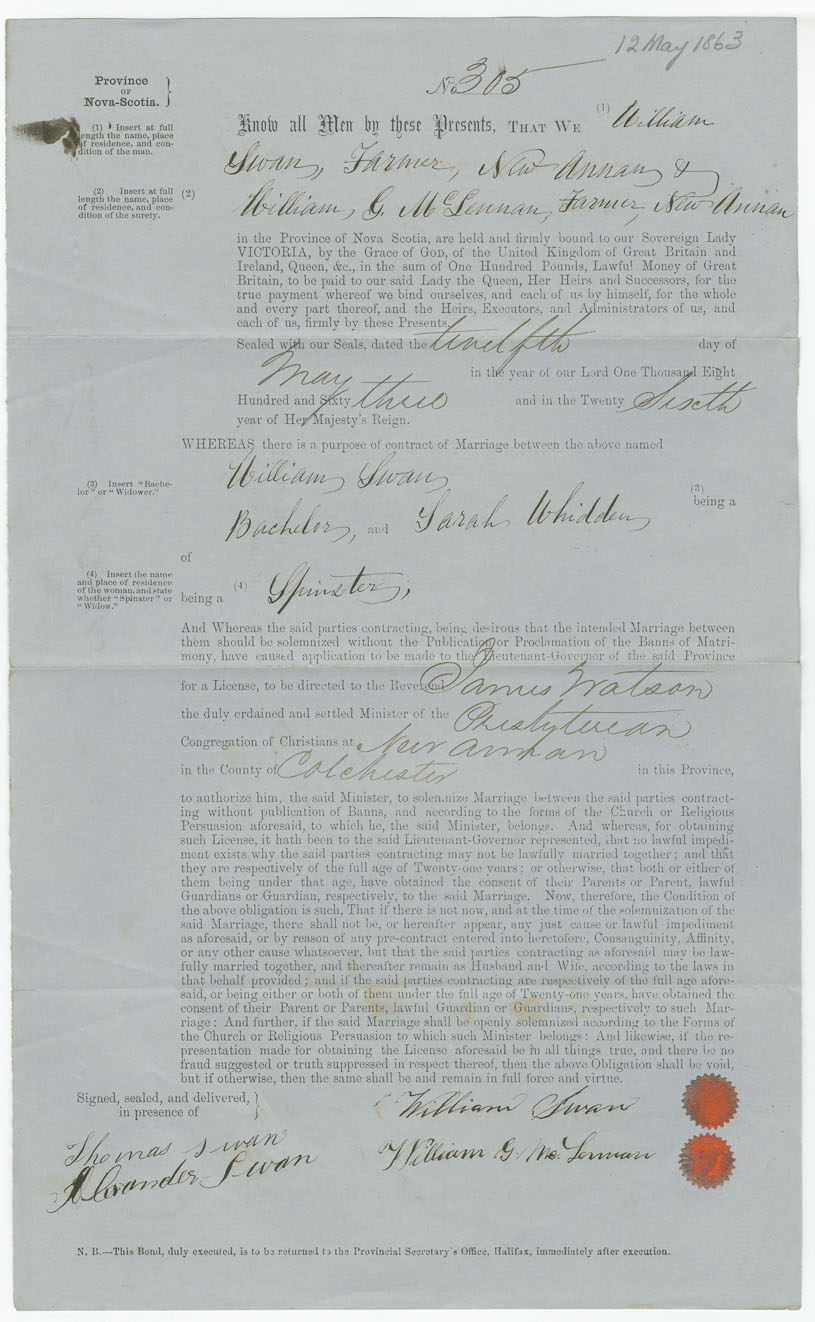 12 May 1863
Province
OF
Nova-Scotia.
No. 305
(1) Insert at full
length the name, place
of residence, and con-
dition of the man.
Know all Men by these Presents, THAT WE (1) William
Swan, Farmer, New Annan &
(2) Insert at full
length the name, place
of residence, and con-
dition of the surety.
(2) William G. McLennan, Farmer, New Annan
in the Province of Nova Scotia, are held and firmly bound to our Sovereign Lady
VICTORIA, by the Grace of GOD, of the United Kingdom of Great Britain and
Ireland, Queen, &c., in the sum of One Hundred Pounds, Lawful Money of Great
Britain, to be paid to our said Lady the Queen, Her Heirs and Successors, for the
true payment whereof we bind ourselves, and each of us by himself, for the whole
and every part thereof, and the Heirs, Executors, and Administrators of us, and
each of us, firmly by these Presents.
Sealed with our Seals, dated the twelfth day of
May in the year of our Lord One Thousand Eight
Hundred and Sixty three and in the Twenty Sixth
year of Her Majesty's Reign.
WHEREAS there is a purpose of contract of Marriage between the above named
William Swan
(3) Insert "Bache-
lor" or "Widower."
(3)
being a
Bachelor, and Sarah Whidden
of
(4) Insert the name
and place of residence
of the woman, and state
whether "Spinster" or
"Widow."
being a (4) Spinster,
And Whereas the said parties contracting, being desirous that the intended Marriage between
them should be solemnized without the Publication or Proclamation of the Banns of Matri-
mony, have caused application to be made to the Lieutenant-Governor of the said Province
for a License, to be directed to the Reverend James Watson
the duly ordained and settled Minister of the Presbyterian
Congregation of Christians at New Annan
in the County of Colchester in this Province,
to authorize him, the said Minister, to solemnize Marriage between the said parties contract-
ing without publication of Banns, and according to the forms of the Church or Religious
Persuasion aforesaid, to which he, the said Minister, belongs. And whereas, for obtaining
such License, it hath been to the said Lieutenant-Governor represented, that no lawful impedi-
ment exists why the said parties contracting may not be lawfully married together; and that
they are respectively of the full age of Twenty-one years; or otherwise, that both or either of
them being under that age, have obtained the consent of their Parents or Parent, lawful
Guardians or Guardian, respectively, to the said Marriage. Now, therefore, the Condition of
the above obligation is such, That if there is not now, and at the time of the solemnization of the
said Marriage, there shall not be, or hereafter appear, any just cause or lawful impediment
as aforesaid, or by reason of any pre-contract entered into heretofore, Consanguinity, Affinity,
or any other cause whatsoever, but that the said parties contracting as aforesaid may be law-
fully married together, and thereafter remain as Husband and Wife, according to the laws in
that behalf provided; and if the said parties contracting are respectively of the full age afore-
said, or being either or both of them under the full age of Twenty-one years, have obtained the
consent of their Parent or Parents, lawful Guardian or Guardians, respectively to such Mar-
riage: And further, if the said Marriage shall be openly solemnized according to the Forms of
the Church or Religious Persuasion to which such Minister belongs: And likewise, if the re-
presentation made for obtaining the License aforesaid be in all things true, and there be no
fraud suggested or truth suppressed in respect thereof, then the above Obligation shall be void,
but if otherwise, then the same shall be and remain in full force and virtue.
Signed, sealed, and delivered,
in presence of
William Swan
Thomas Swan
William G. McLennan
Alexander Swan
N. B.—This Bond, duly executed, is to be returned to the Provincial Secretary's Office, Halifax, immediately after execution.